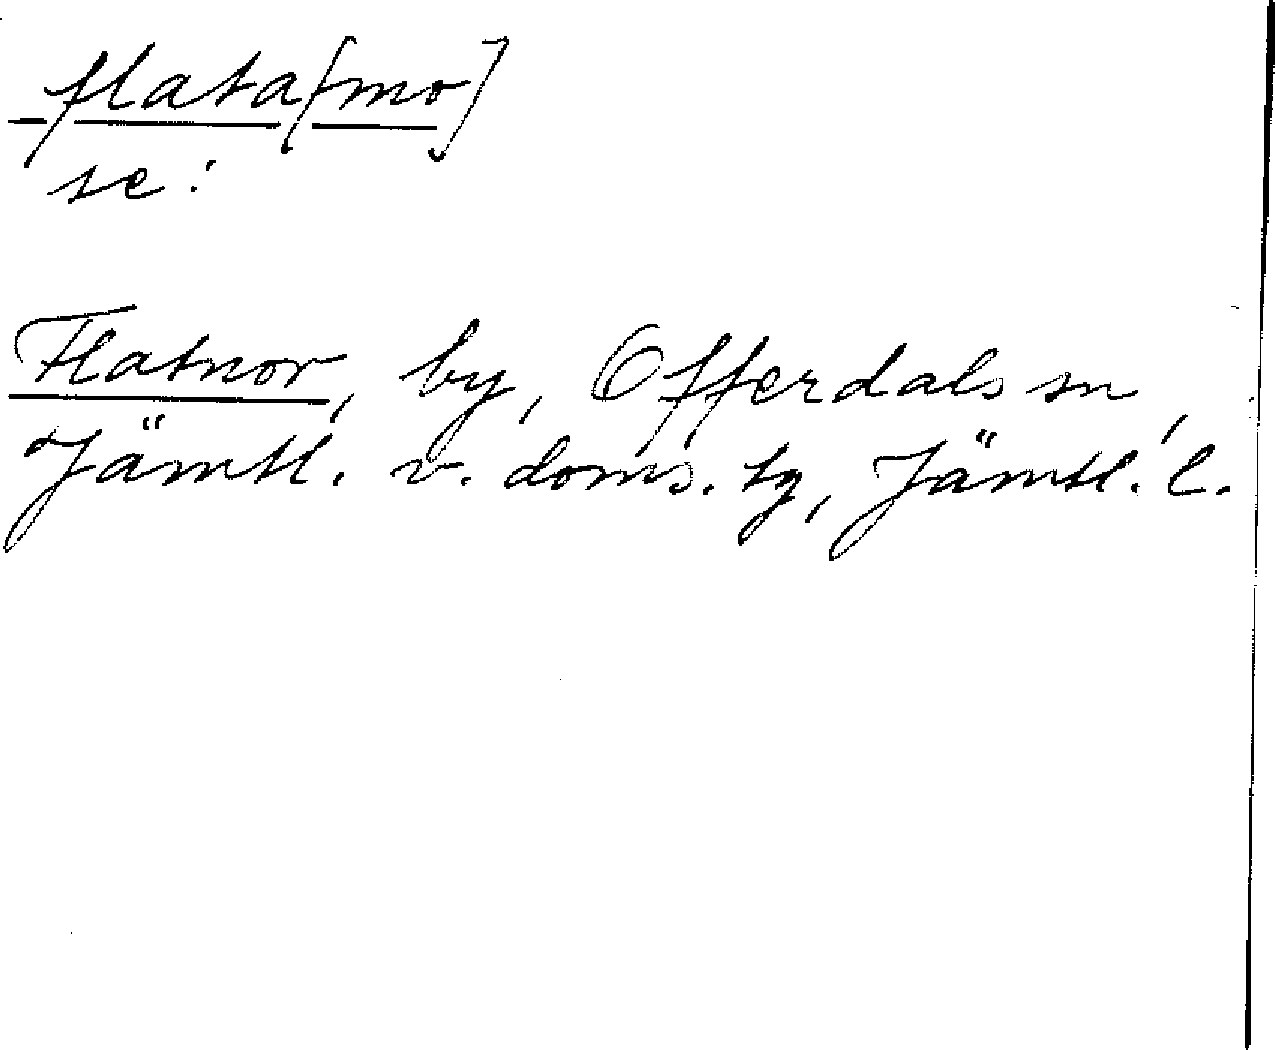 flata[mo]
se:
Flatnor, by, Offerdals sn,
Jämtl. v. doms. tg, Jämtl. l.